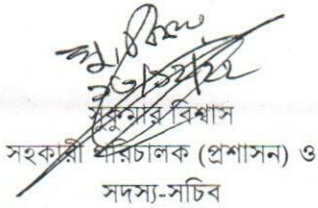 সুকুমার বিশ্বাস
সহকারী পরিচালক (প্রশাসন) ও
সদস্য-সচিব